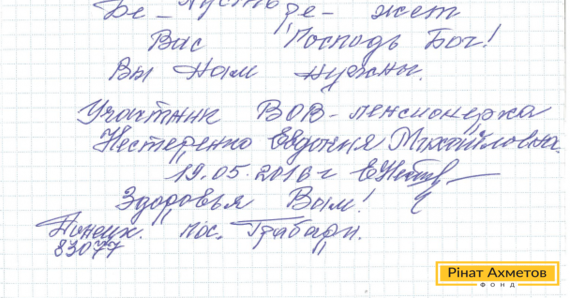 Бе- Пусть ре- жет
Вас Господь Бог!
Вы нам нужны.
Участник ВОВ-пенсионерка
Нестеренко Евдокия Михайловна.
19.05.2016 г
Здоровья Вам!
Донецк. пос. Грабари.
83077
Рінат Ахметов
ФОНД